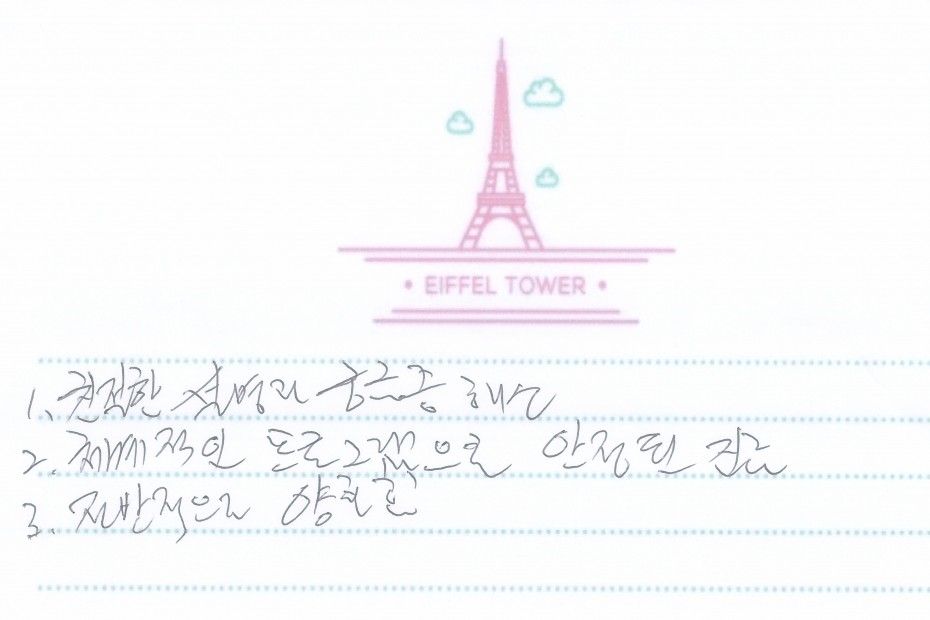 • EIFFEL TOWER •
1. 친절한 설명과 궁금증 해소
2. 체계적인 프로그램으로 안정된 진급
3. 전반적으로 양호함